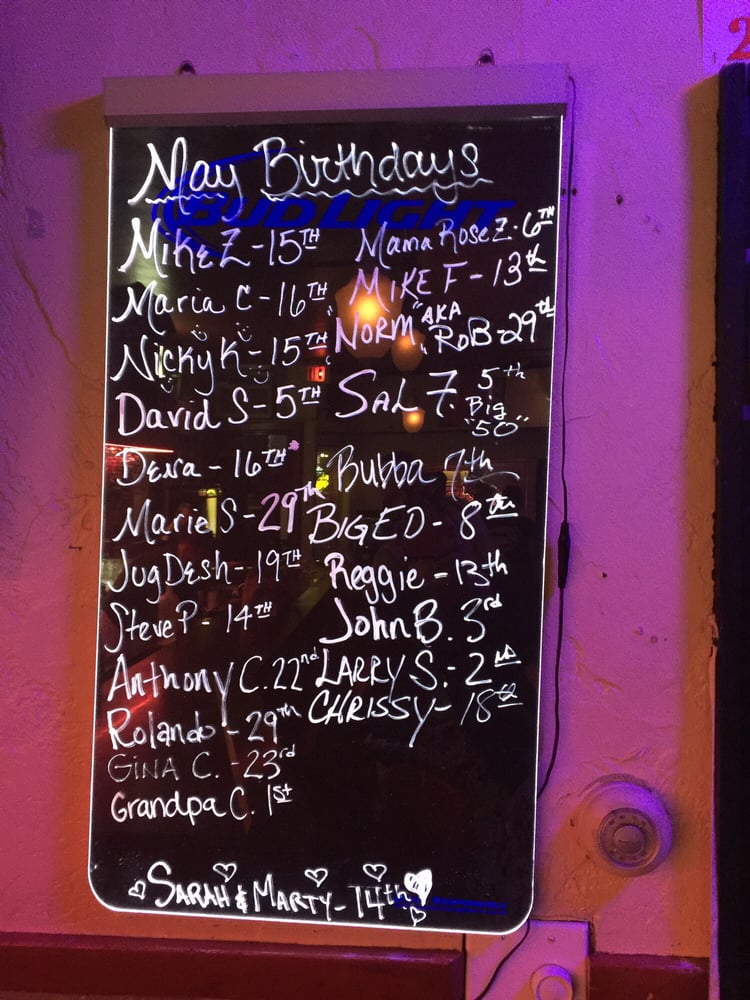 May Birthdays
BUD LIGHT
Mike Z - 15TH
Maria C - 16TH
Nicky K - 15TH
David S - 5TH
Dena - 16TH
Marie S - 29TH
JugDesh - 19TH
Steve P - 14TH
Anthony C. 22nd
Rolando - 29th
GINA C. - 23rd
Grandpa C. 1st
Mama Rose Z. 6TH
MIKE F - 13th
NORM "AKA
"ROB - 29th
SAL Z. 5th
Big
"50"
Bubba 7th
BIG ED - 8th
Reggie - 13th
John B. 3rd
LARRY S. - 2nd
CHRISSY - 18th
SARAH & MARTY - 14th